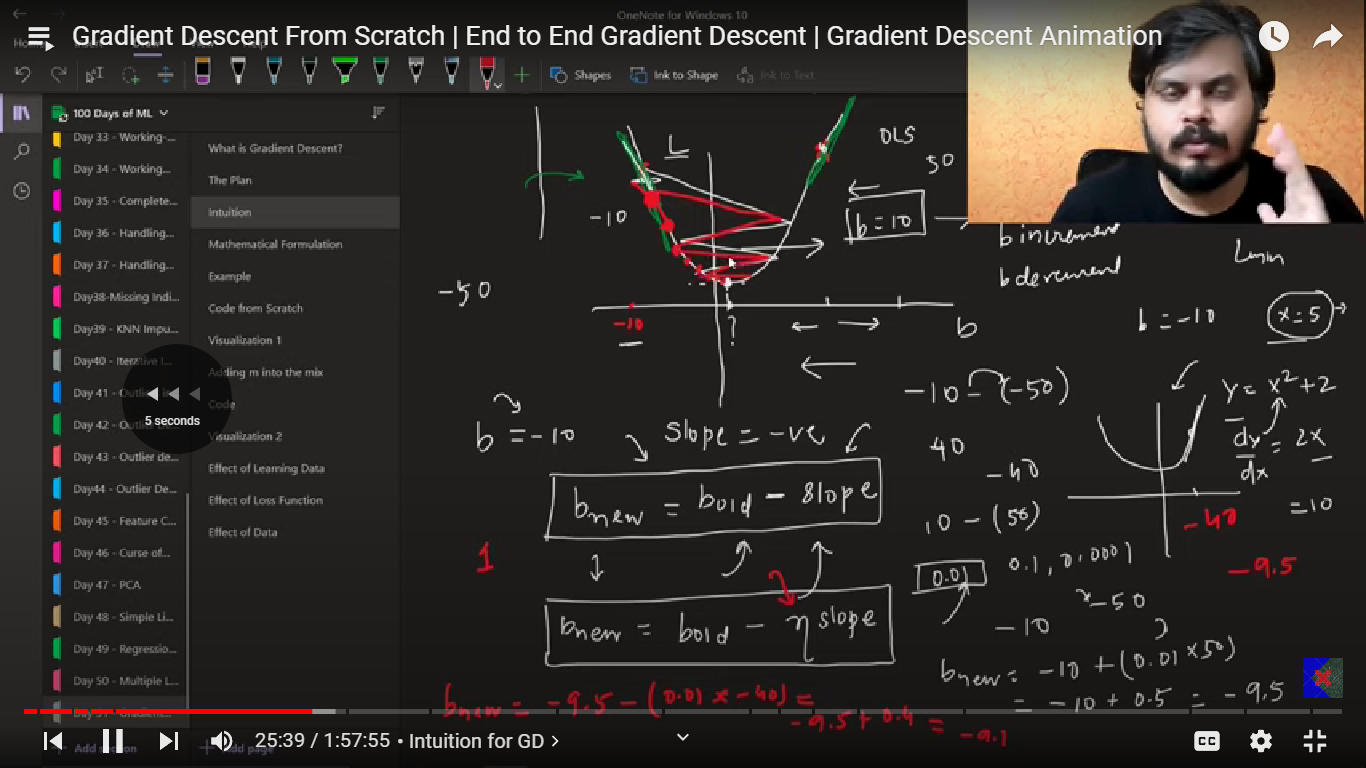 OneNote for Windows 10
Gradient Descent From Scratch | End to End Gradient Descent | Gradient Descent Animation
Shapes
Ink to Shape
Ink to Text
100 Days of ML
Day 33 - Working-...
Day 34 - Working...
Day 35 - Complete...
Day 36 - Handling...
Day 37 - Handling...
Day38-Missing Indi...
Day39 - KNN Impu...
Day40 - Iterative I...
Day 41 -
Day 42 -
Day 43 - Outlier de...
Day44 - Outlier De...
Day 45 - Feature C...
Day 46 - Curse of...
Day 47 - PCA
Day 48 - Simple Li...
Day 49 - Regressio...
Day 50 - Multiple L...
Add section
5 seconds
What is Gradient Descent?
The Plan
Intuition
Mathematical Formulation
Example
Code from Scratch
Visualization 1
Adding m into the mix
Code
Visualization 2
Effect of Learning Data
Effect of Loss Function
Effect of Data
Add page
L
OLS
50
-10
b = 10
b increment
b decrement
Lmin
-50
-10
?
b
b = -10
x = 5
-10 - (-50)
y = x² + 2
b = -10
slope = -ve
40
dy/dx = 2x
-40
bnew = bold - slope
10 - (50)
-40
= 10
1
0.01
0.1, 0.0001
-9.5
-50
bnew = bold - η slope
-10
bnew = -10 + (0.01 x 50)
= -10 + 0.5 = -9.5
bnew = -9.5 - (0.01 x -40) =
-9.5 + 0.4 = -9.1
25:39 / 1:57:55 • Intuition for GD
CC